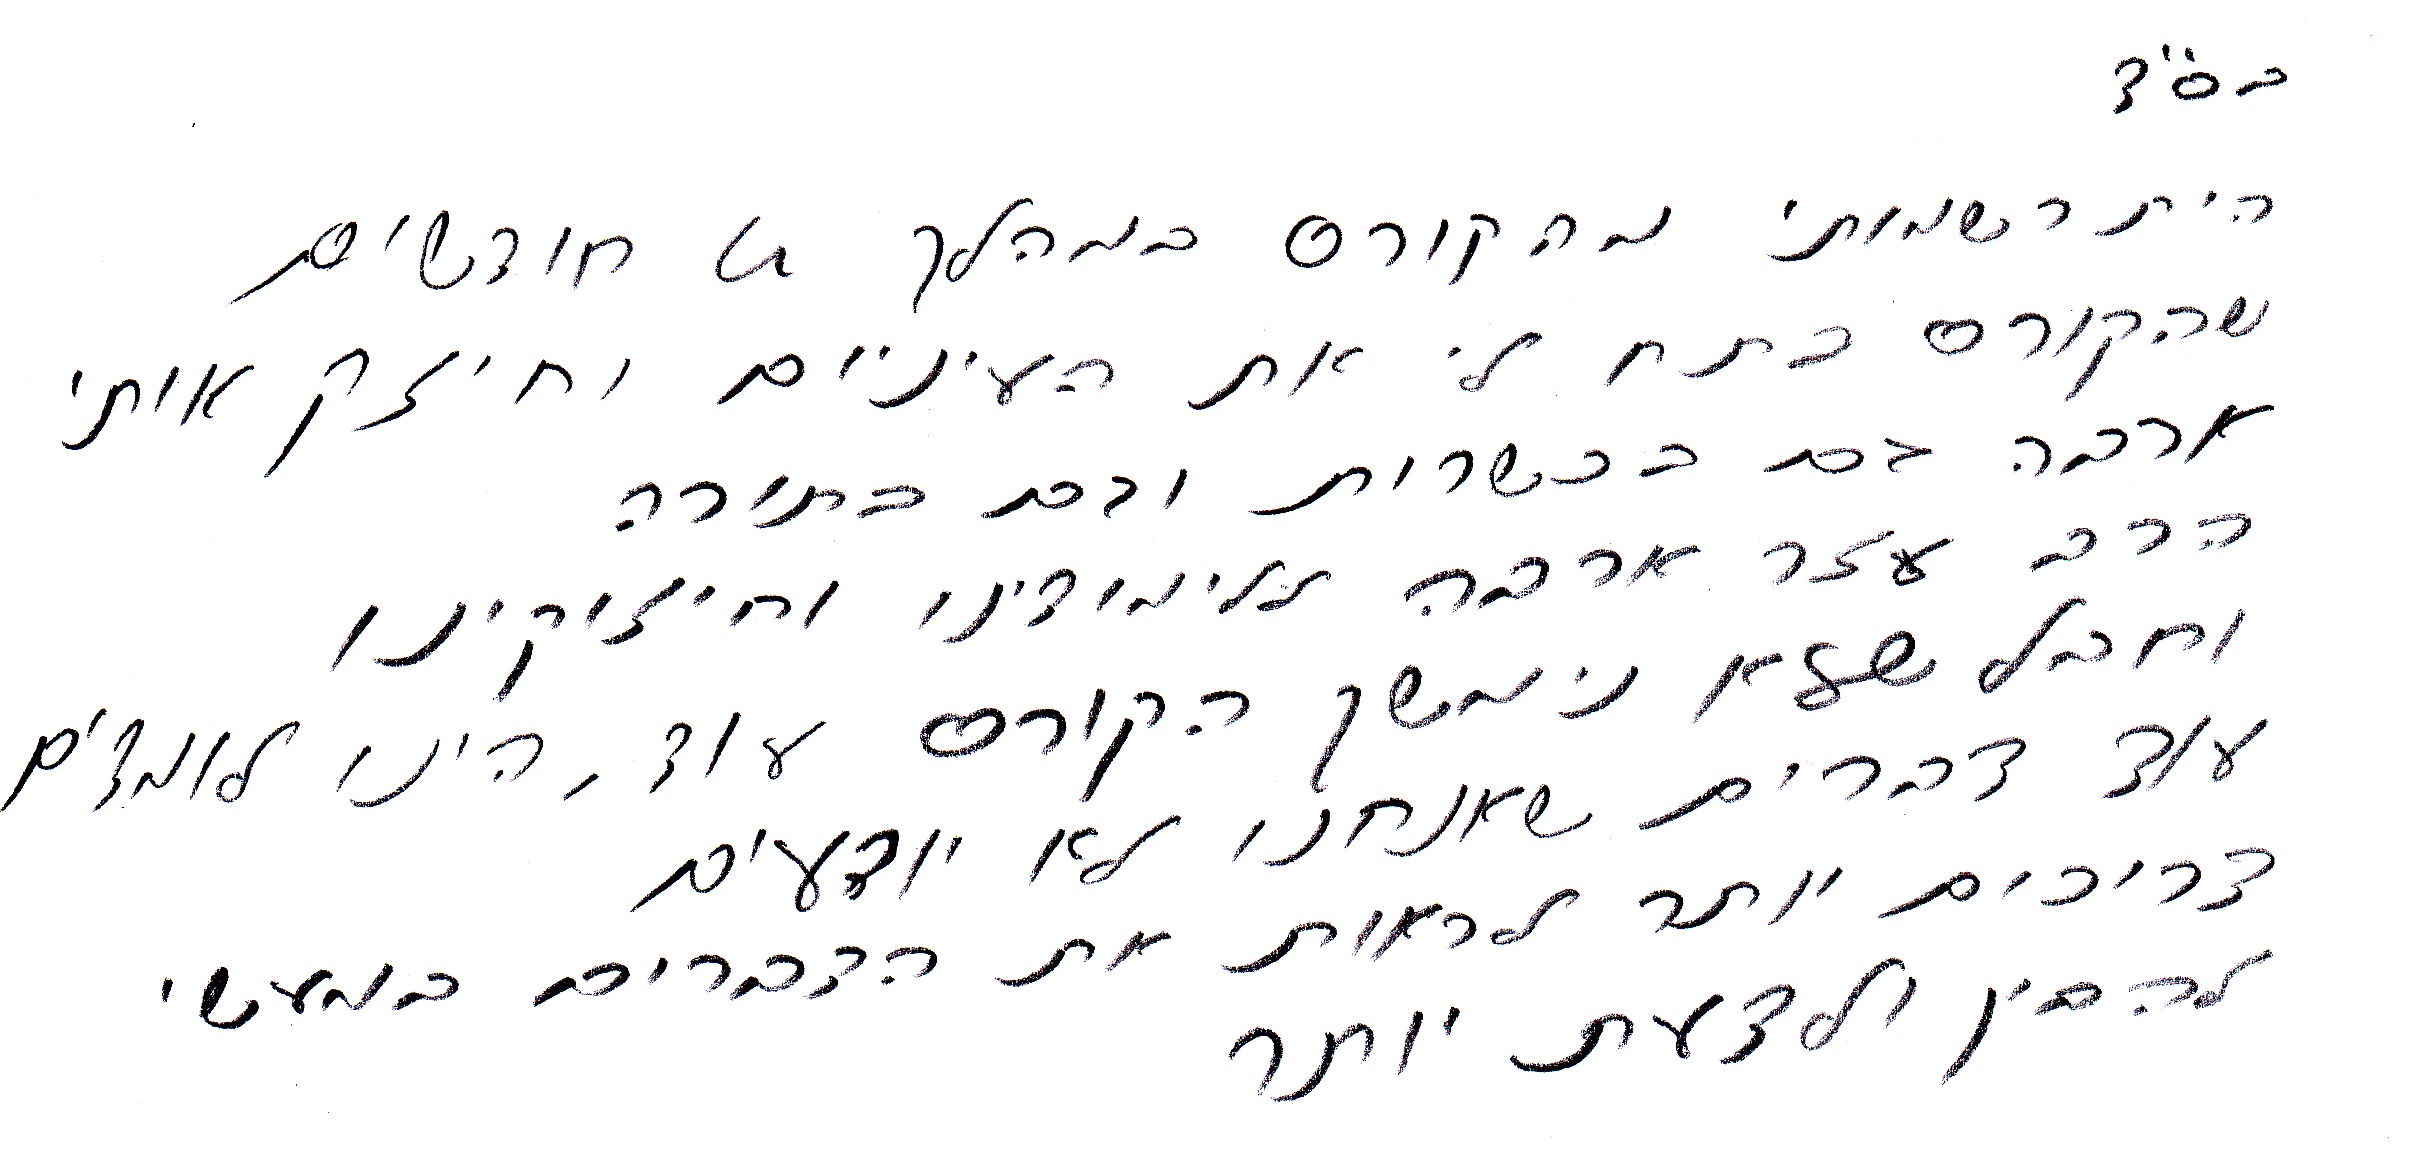 בס"ד
היתרשמותי מהקורס במהלך 4 חודשים
שהקורס פתח לי את העיניים וחיזק אותי
ארבה גם בכשרות וגם בתורה
הרב עזר ארבה ללימודינו וחיזוקינו
וחבל שלא נימשך הקורס עוד, הינו לומדים
עוד דברים שאנחנו לא יודעים
צריכים יותר לראות את הדברים במעשי
להבין ולדעת יותר